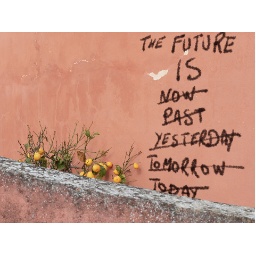 THE FUTURE
IS
NOW
PAST
YESTERDAY
TOMORROW
TODAY